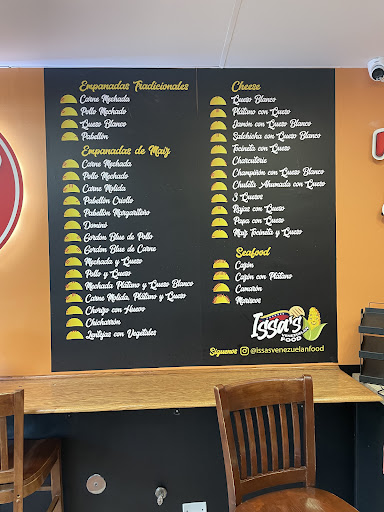 Empanadas Tradicionales
Carne Mechada
Pollo Mechado
Queso Blanco
Pabellón
Empanadas de Maíz
Carne Mechada
Pollo Mechado
Carne Molida
Pabellón Criollo
Pabellón Margariteño
Dominó
Gordon Blue de Pollo
Gordon Blue de Carne
Mechada y Queso
Pollo y Queso
Mechada Plátano y Queso Blanco
Carne Molida, Plátano y Queso
Chorizo con Huevo
Chicharrón
Lentejas con Vegetales
Cheese
Queso Blanco
Plátano con Queso
Jamón con Queso Blanco
Salchicha con Queso Blanco
Tocineta con Queso
Charcuterie
Champiñón con Queso Blanco
Chuleta Ahumada con Queso
3 Quesos
Rajas con Queso
Papa con Queso
Maíz Tocineta y Queso
Seafood
Cazón
Cazón con Plátano
Camarón
Mariscos
Issa's
VENEZUELAN
FOOD
Síguenos @issasvenezuelanfood